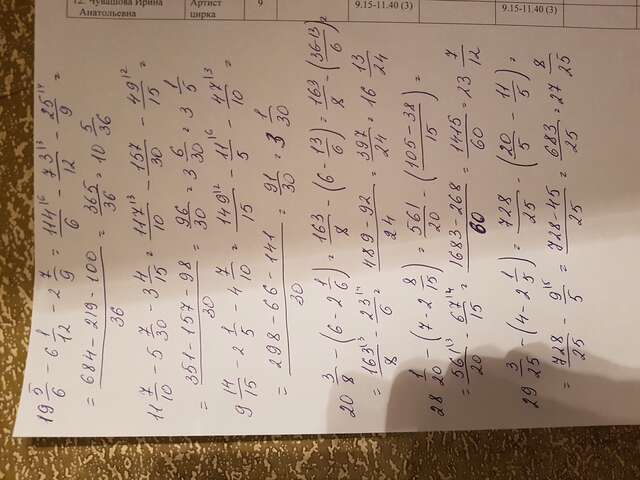 19 5/6 - 6 1/12 - 2 7/9 = 114^16/6 - 73^13/12 - 25^14/9 =
= (684 - 219 - 100)/36 = 365/36 = 10 5/36
11 7/10 - 5 7/30 - 3 4/15 = 117^13/10 - 157/30 - 49^12/15 =
= (351 - 157 - 98)/30 = 96/30 = 3 6/30 = 3 1/5
9 14/15 - 2 1/5 - 4 7/10 = 149^12/15 - 11^16/5 - 47^13/10 =
= (298 - 66 - 141)/30 = 91/30 = 3 1/30
20 3/8 - (6 - 2 1/6) = 163/8 - (6 - 13/6) = 163/8 - ((36-13)/6) =
= 163^13/8 - 23^14/6 = (489 - 92)/24 = 397/24 = 16 13/24
28 1/20 - (7 - 2 8/15) = 561/20 - ((105 - 38)/15) =
= 561^13/20 - 67^14/15 = (1683 - 268)/60 = 1415/60 = 23 7/12
29 3/25 - (4 - 2 1/5) = 728/25 - (20/5 - 11/5) =
= 728/25 - 9^15/5 = (728 - 45)/25 = 683/25 = 27 8/25
Анатольевна
9
9.15-11.40 (3)
9.15-11.40 (3)